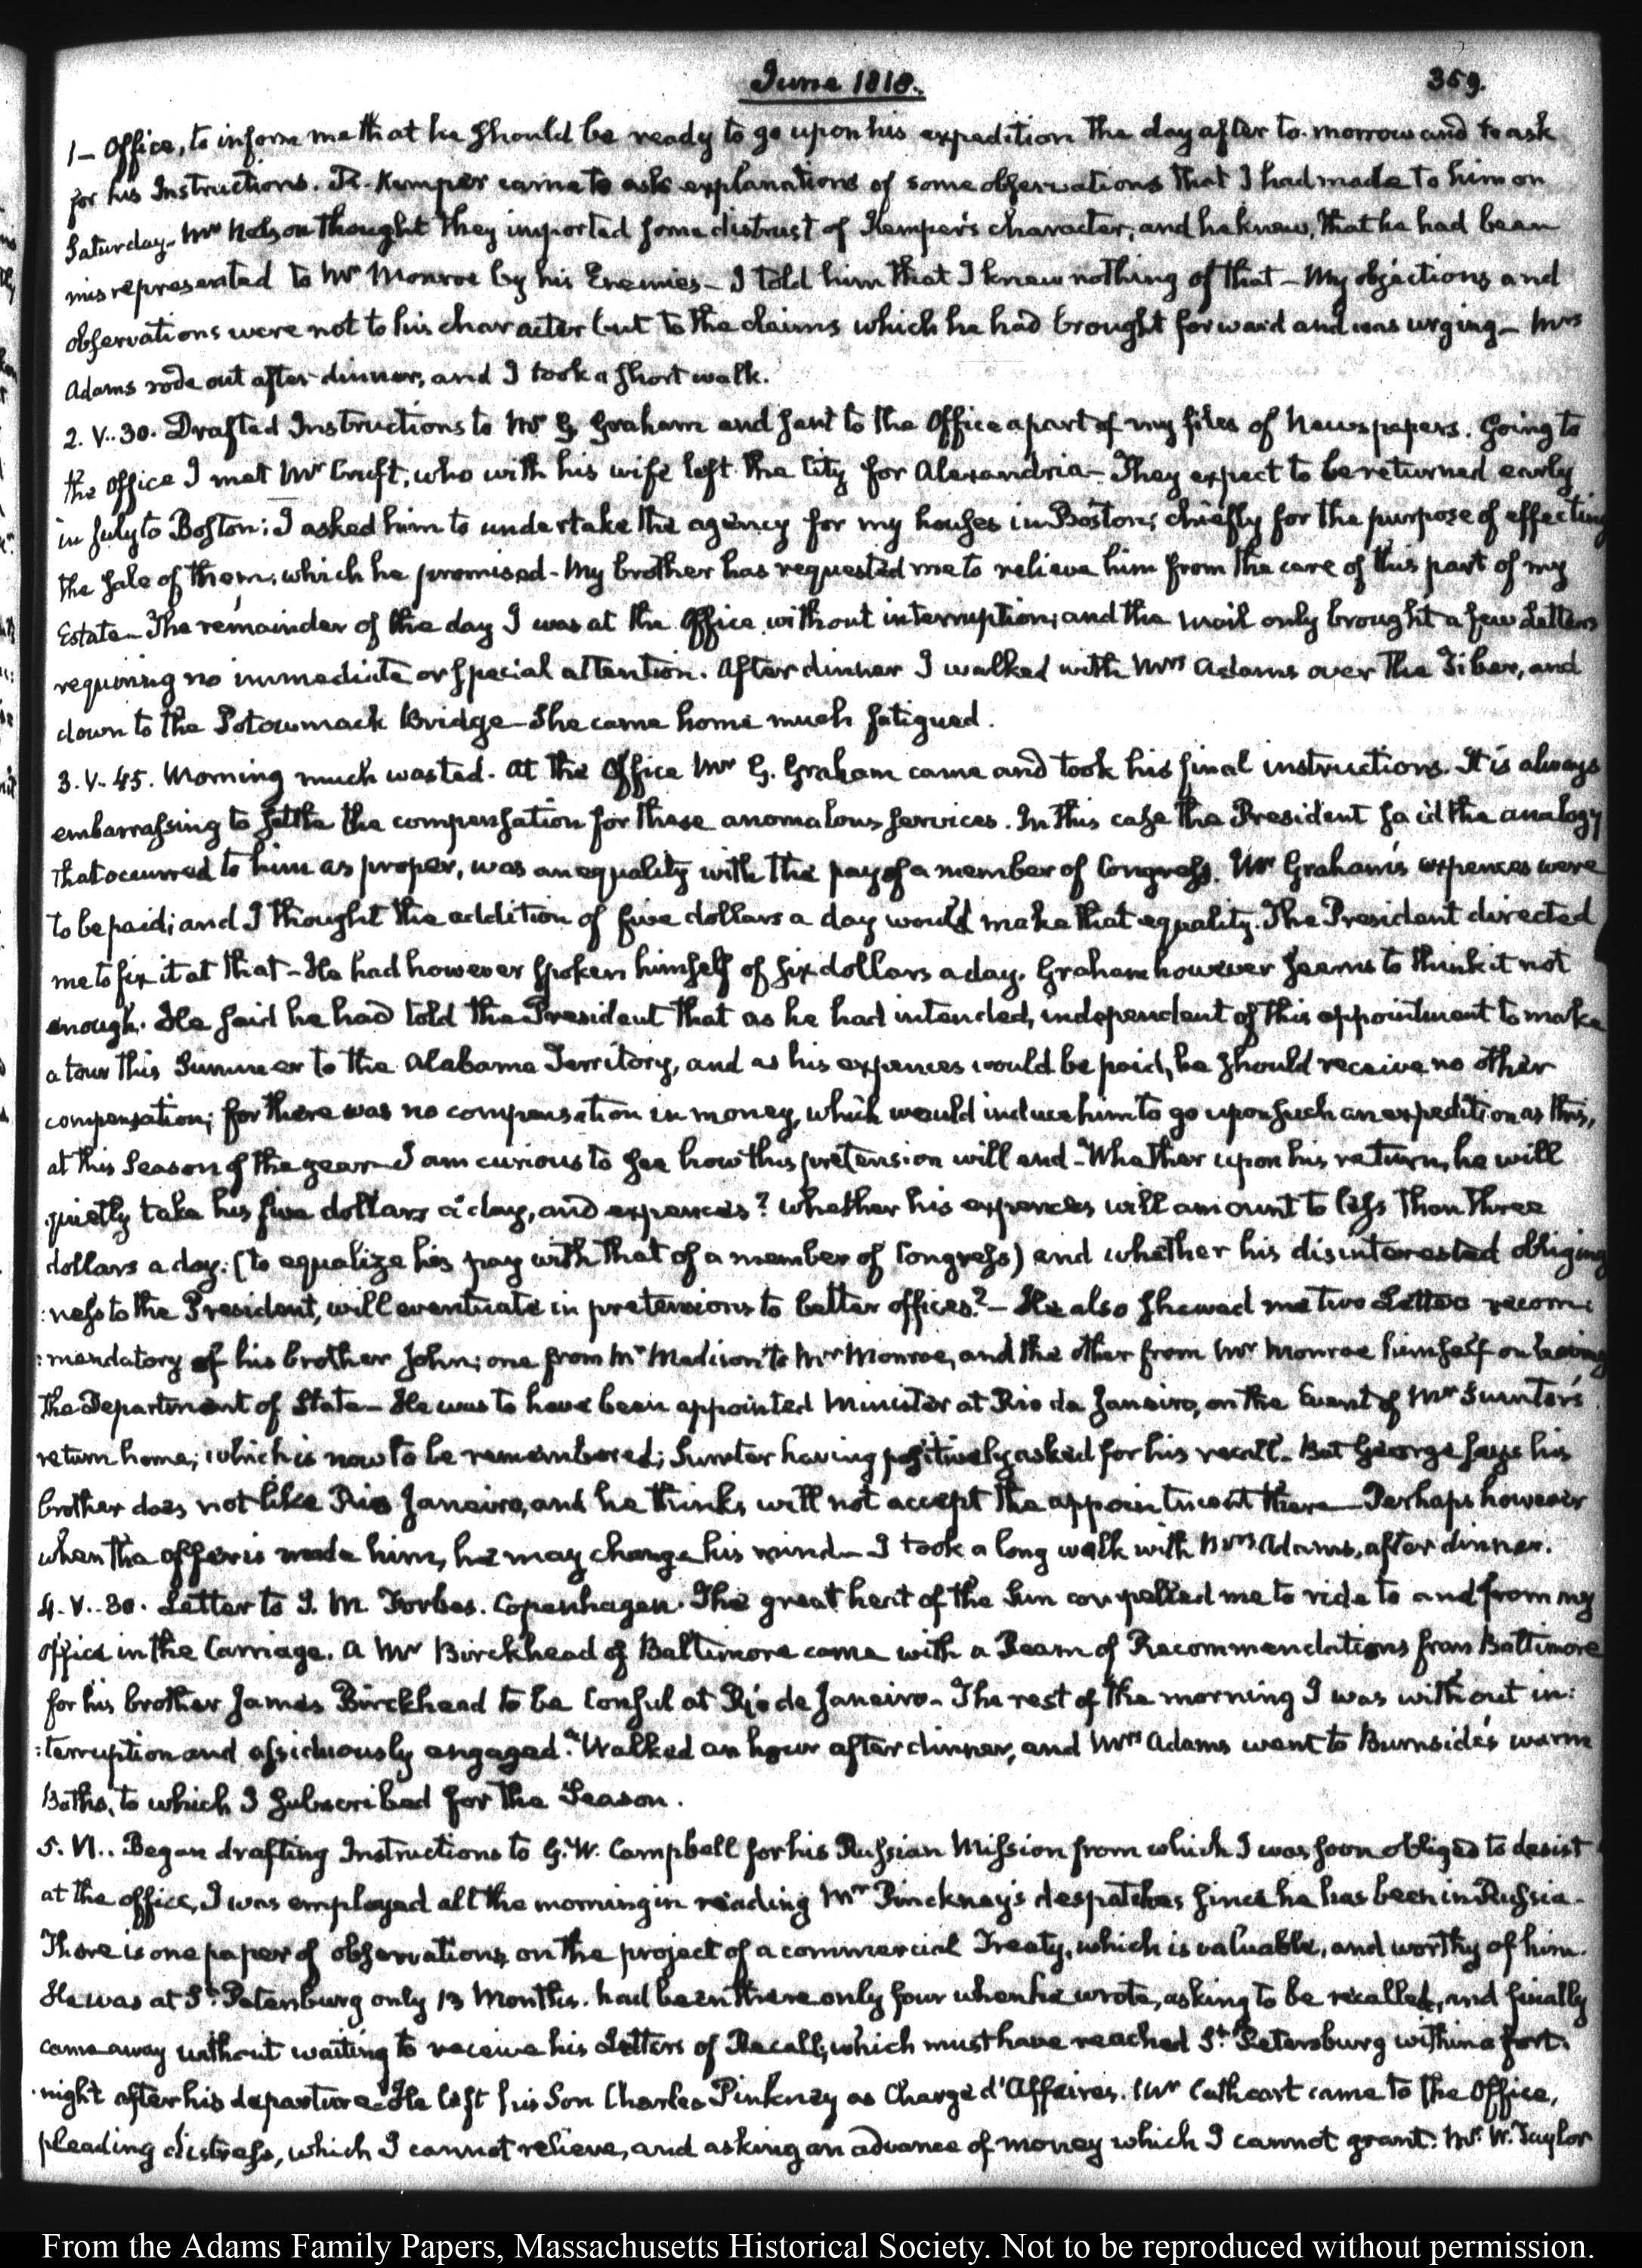 June 1818.
359.
1- Office, to inform me that he should be ready to go upon his expedition the day after to-morrow and to ask
for his Instructions. R. Kemper came to ask explanations of some observations that I had made to him on
Saturday- Mr Nelson thought they imported some distrust of Kemper's character, and he knew, that he had been
misrepresented to Mr Monroe by his Enemies- I told him that I knew nothing of that- My objections and
observations were not to his character but to the claims which he had brought forward and was urging- Mrs
Adams rode out after dinner, and I took a short walk.
2. V..30. Drafted Instructions to Mr G Graham and sent to the Office a part of my files of Newspapers. Going to
the office I met Mr Cruft, who with his wife left the City for Alexandria- They expect to be returned early
in July to Boston: I asked him to undertake the agency for my houses in Boston; chiefly for the purpose of effecting
the sale of them; which he promised- My brother has requested me to relieve him from the care of this part of my
Estate- The remainder of the day I was at the Office without interruption; and the mail only brought a few Letters
requiring no immediate or special attention. After dinner I walked with Mrs Adams over the Tiber, and
down to the Potowmack Bridge- She came home much fatigued.
3. V..45. Morning much wasted. At the Office Mr G. Graham came and took his final instructions. It is always
embarrassing to settle the compensation for these anomalous services. In this case the President said the analogy
that occurred to him as proper, was an equality with the pay of a member of Congress. Mr Graham's expences were
to be paid; and I thought the addition of five dollars a day would make that equality. The President directed
me to fix it at that- He had however spoken himself of six dollars a day. Graham however seems to think it not
enough. He said he had told the President that as he had intended, independent of this appointment to make
a tour this Summer to the Alabama Territory, and as his expences would be paid, he should receive no other
compensation; for there was no compensation in money, which would induce him to go upon such an expedition as this,
at this Season of the year- I am curious to see how this pretension will end- Whether upon his return, he will
quietly take his five dollars a day, and expences? Whether his expences will amount to less than three
dollars a day. (to equalize his pay with that of a member of Congress) and whether his disinterested obliging
:ness to the President, will eventuate in pretensions to better offices?- He also shewed me two Letters recom:
:mendatory of his brother John; one from Mr Madison to Mr Monroe, and the other from Mr Monroe himself on leaving
the Department of State- He was to have been appointed Minister at Rio de Janeiro, on the Event of Mr Sumter's
return home; which is now to be remembered; Sumter having positively asked for his recall. But George says his
brother does not like Rio Janeiro, and he thinks will not accept the appointment there- Perhaps however
when the offer is made him, he may change his mind- I took a long walk with Mrs Adams, after dinner.
4. V..30. Letter to J. M. Forbes. Copenhagen. The great heat of the Sun compelled me to ride to and from my
office in the Carriage. A Mr Birckhead of Baltimore came with a Ream of Recommendations from Baltimore
for his brother James Birckhead to be Consul at Rio de Janeiro- The rest of the morning I was without in:
:terruption and assiduously engaged. Walked an hour after dinner, and Mrs Adams went to Burnside's warm
Baths, to which I subscribed for the Season.
5. VI.. Began drafting Instructions to G. W. Campbell for his Russian Mission from which I was soon obliged to desist
at the office, I was employed all the morning in reading Mr Pinckney's despatches since he has been in Russia-
There is one paper of observations on the project of a commercial Treaty, which is valuable, and worthy of him.
He was at St Petersburg only 13 Months. had been there only four when he wrote, asking to be recalled, and finally
came away without waiting to receive his Letters of Recall, which must have reached St Petersburg within a fort:
:night after his departure- He left his Son Charles Pinkney as Chargé d'Affaires. Mr Cathcart came to the Office,
pleading distress, which I cannot relieve, and asking an advance of money which I cannot grant. Mr W. Taylor
From the Adams Family Papers, Massachusetts Historical Society. Not to be reproduced without permission.